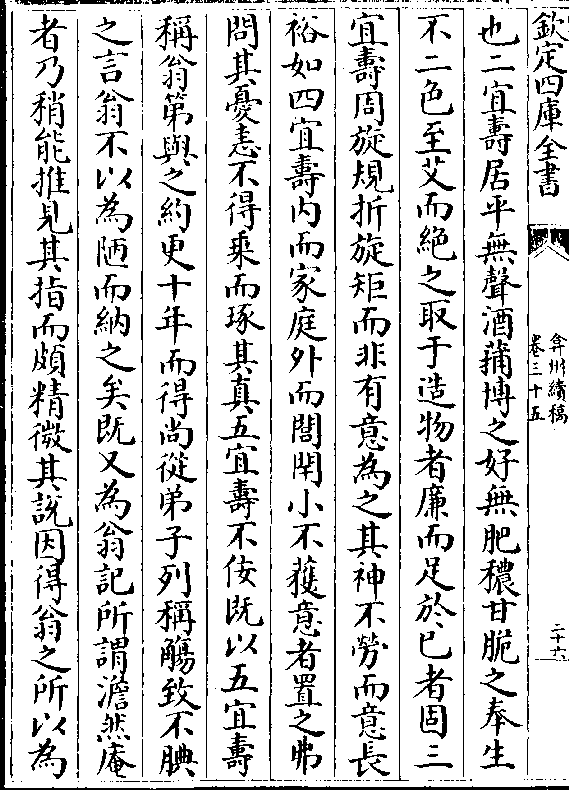 欽定四庫全書
弇州續稿
卷三十五
二十六
也二宜壽居平無聲酒蒱博之好無肥穠甘脆之奉生
不二色至艾而絕之取于造物者廉而足於已者固三
宜壽周旋規折旋矩而非有意為之其神不勞而意長
裕如四宜壽内而家庭外而閭閈小不獲意者置之弗
問其憂恚不得乘而琢其真五宜壽不佞既以五宜壽
稱翁第與之約更十年而得尚從弟子列稱觴致不腆
之言翁不以為陋而納之矣既又為翁記所謂澹然庵
者乃稍能推見其指而頗精微其説因得翁之所以為